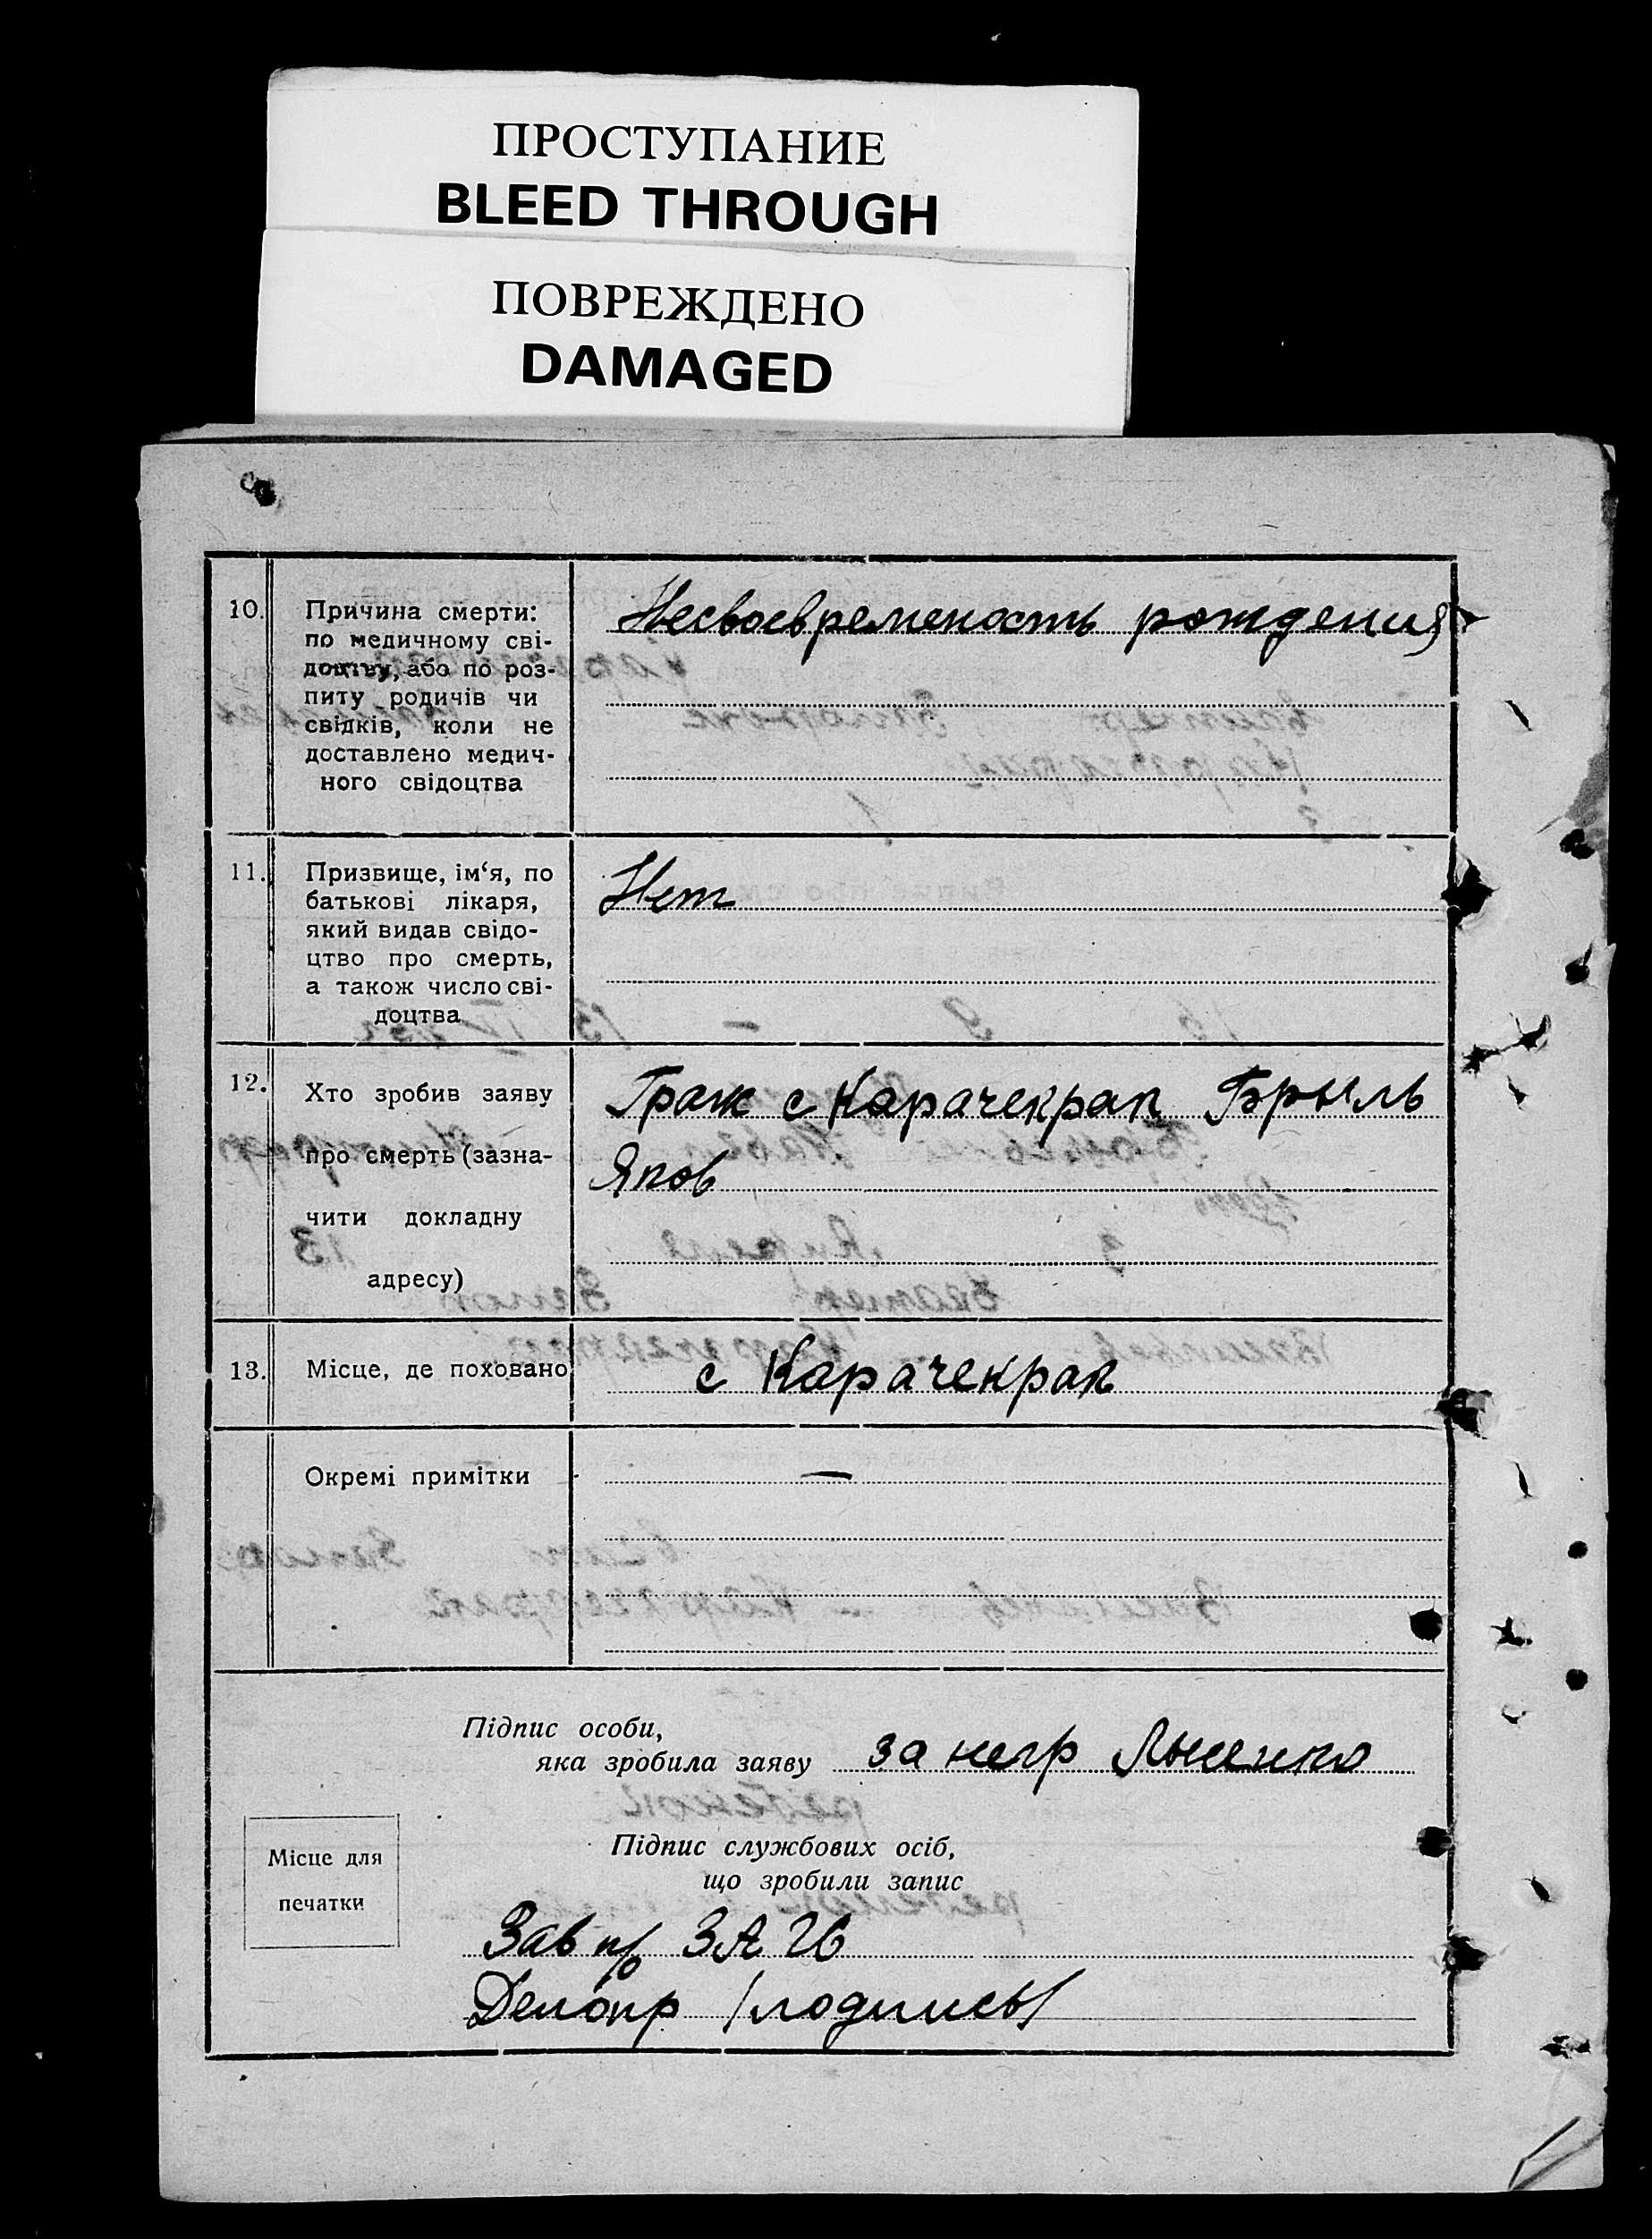 ПРОСТУПАНИЕ
BLEED THROUGH
ПОВРЕЖДЕНО
DAMAGED
10. Причина смерти: Несвоевременость рождения
по медичному сві-
доцтву, або по роз-
питу родичів чи
свідків, коли не
доставлено медич-
ного свідоцтва
11. Призвище, ім‘я, по Нет
батькові лікаря,
який видав свідо-
цтво про смерть,
а також число сві-
доцтва
12. Хто зробив заяву Граж с Карачекрак Брыль
про смерть (зазна- Яков
чити докладну
адресу)
13. Місце, де поховано с Карачекрак
Окремі примітки —
Підпис особи,
яка зробила заяву за негр
Підпис службових осіб,
що зробили запис
Місце для
печатки
Зав п/о ЗАГС
Делопр /подпись/